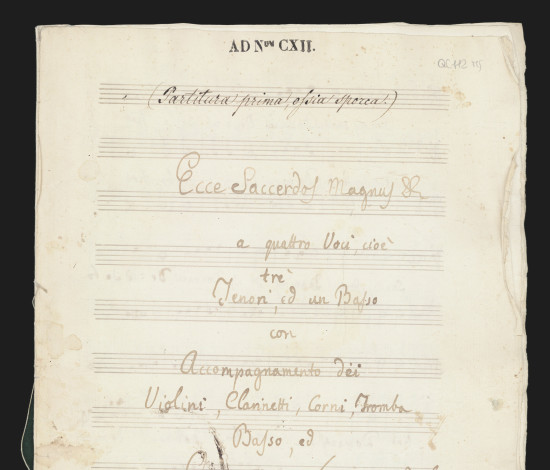 AD Nᵘᵐ CXII.
(Partitura prima, ossia sporca.)
Ecce Saccerdos Magnus &
a quattro Voci, cioè
trè
Tenori, ed un Basso
con
Accompagnamento dèi
Violini, Clarinetti, Corni, Tromba
Basso, ed